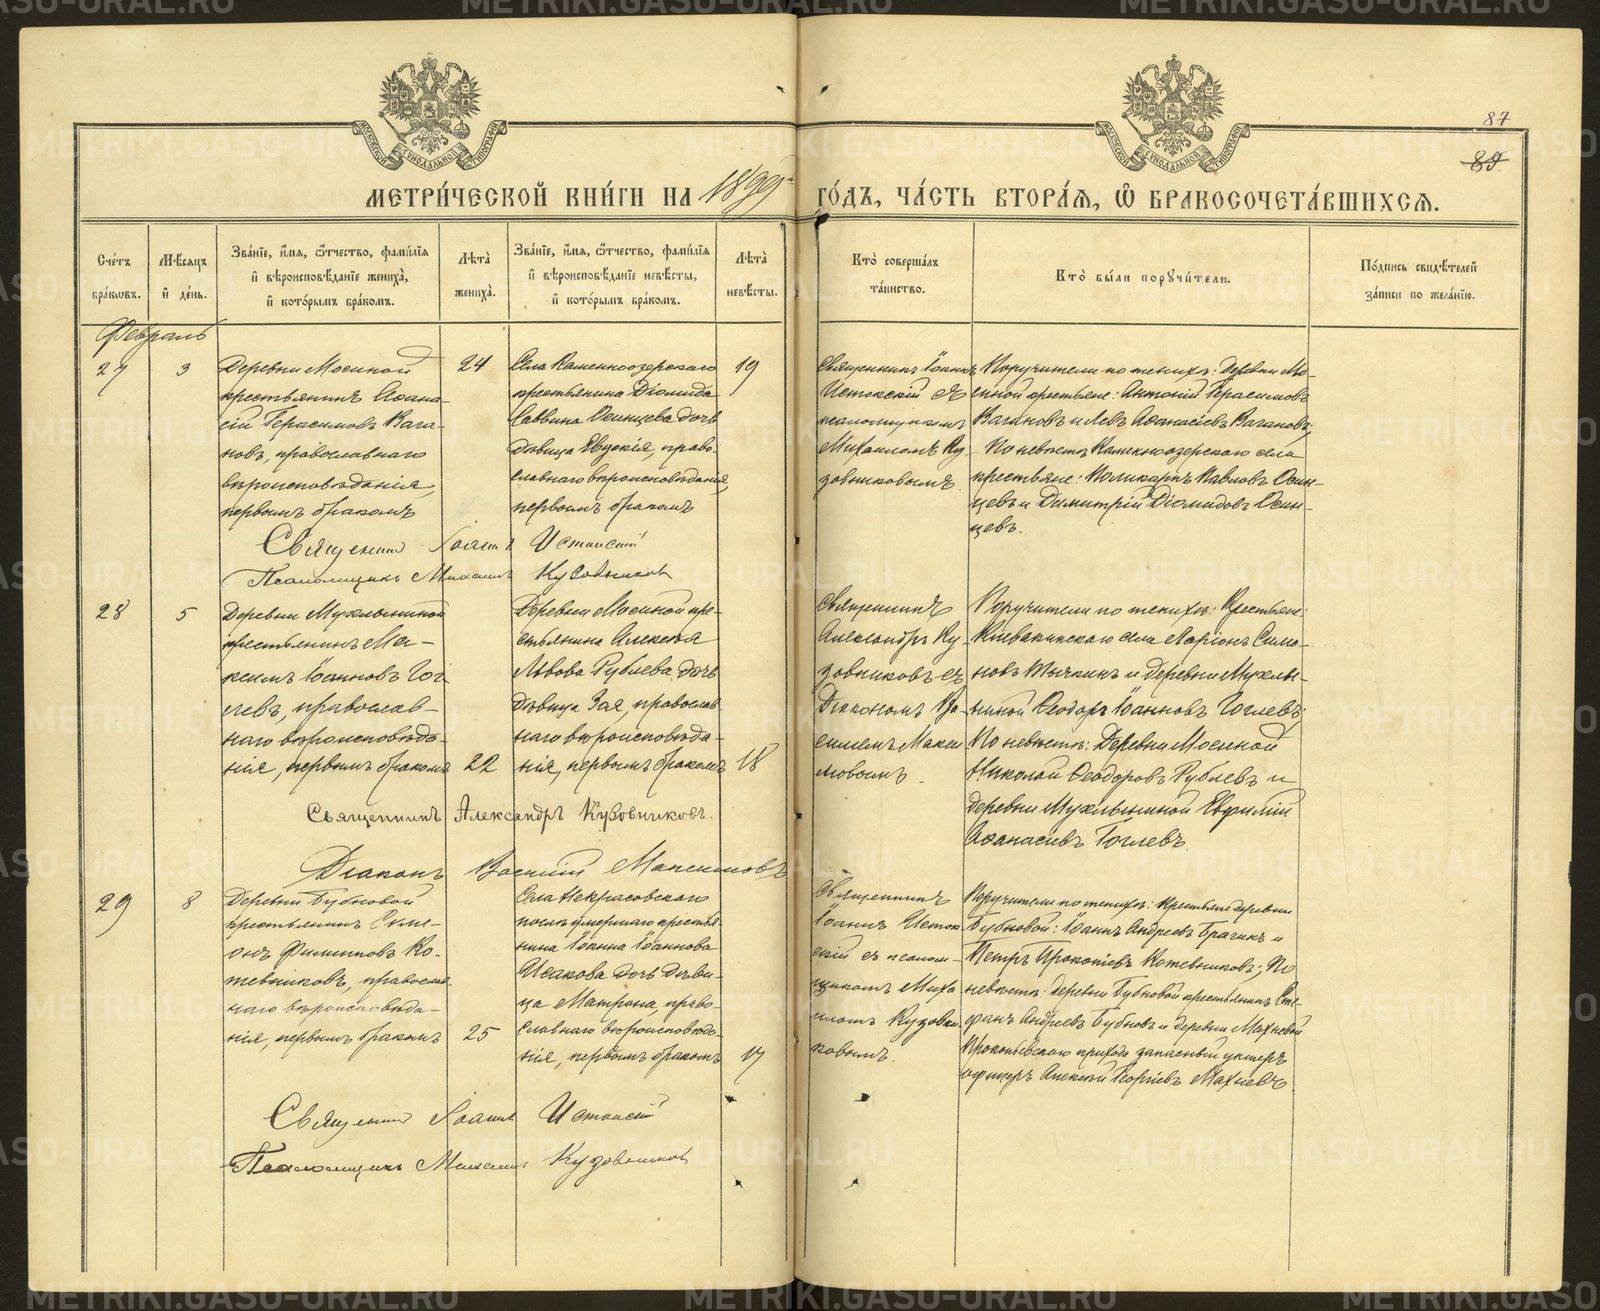 87
89.
МЕТРИ́ЧЕСКОЙ КНИ́ГИ НА 1899й ГО́ДЪ, ЧА́СТЬ ВТОРА́Я, Ѿ БРАКОСОЧЕТА́ВШИХСЯ.
Сче́тъ бра́кѡвъ.
Мѣ́сяцъ и҆ де́нь.
Зва́нїе, и҆́мя, ѻ҆́тчество, фами́лїя и҆ вѣроисповѣ́данїе жениха̀, и҆ кото́рымъ бра́комъ.
Лѣ́та жениха̀.
Зва́нїе, и҆́мя, ѻ҆́тчество, фами́лїя и҆ вѣроисповѣ́данїе невѣ́сты, и҆ кото́рымъ бра́комъ.
Лѣ́та невѣ́сты.
Кто̀ соверша́лъ та́инство.
Кто̀ бы́ли поручи́тели.
По́дпись свидѣ́телей за́писи по жела́нїю.
Февраль
27
3
Деревни Мосиной
крестьянинъ Аѳана-
сій Герасимовъ Вага-
новъ, православнаго
вѣроисповѣданія,
первымъ бракомъ
24
Села Каменноозерскаго
крестьянина Діомида
Саввина Осинцева дочь
дѣвица Евдокія, право-
славнаго вѣроисповѣданія,
первымъ бракомъ
19
Священникъ Іоаннъ
Истокскій съ
псаломщикомъ
Михаиломъ Ку-
зовниковымъ
Поручители по женихѣ: Деревни Мо-
синой крестьяне: Антоній Герасимовъ
Вагановъ и Левъ Аѳанасіевъ Вагановъ;
По невѣстѣ Каменноозерскаго села
крестьяне: Поликарпъ Павловъ Осин-
цевъ и Димитрій Діомидовъ Осин-
цевъ.
Священникъ Іоаннъ Истокскій
Псаломщикъ Михаилъ Кузовниковъ
28
5
Деревни Мухлыниной
крестьянинъ Ма-
ксимъ Іоанновъ Гог-
левъ, православ-
наго вѣроисповѣда-
нія, первымъ бракомъ
22
Деревни Мосиной кре-
стьянина Алексѣя
Львова Рублева дочь
дѣвица Зоя, православ-
наго вѣроисповѣда-
нія, первымъ бракомъ
18
Священникъ
Александръ Ку-
зовниковъ съ
Діакономъ Ва-
силіемъ Макси-
мовымъ.
Поручители по женихѣ: Крестьяне:
села Ларіонъ Симо-
новъ и деревни Мухлы-
ниной Ѳеодоръ Іоанновъ Гоглевъ;
По невѣстѣ: Деревни Мосиной
Николай Ѳеодоровъ Рублевъ и
деревни Мухлыниной Евфимій
Аѳанасіевъ Гоглевъ.
Священникъ Александръ Кузовниковъ.
Діаконъ Василій Максимовъ
29
8
Деревни Бубновой
крестьянинъ Симе-
онъ Филипповъ Ко-
жевниковъ, православ-
наго вѣроисповѣда-
нія, первымъ бракомъ
25
Села Некрасовскаго
послѣ умершаго крестья-
нина Іоанна Іоаннова
Исакова дочь дѣви-
ца Матрона, право-
славнаго вѣроисповѣда-
нія, первымъ бракомъ
17
Священникъ
Іоаннъ Исток-
скій съ псалом-
щикомъ Миха-
иломъ Кузовни-
ковымъ.
Поручители по женихѣ: крестьяне деревни
Бубновой: Іоаннъ Андреевъ Брагинъ и
Петръ Прокопіевъ Кожевниковъ; По
невѣстѣ: деревни Бубновой крестьянинъ Сте-
фанъ Андреевъ Бубновъ и деревни Махневой
Прокопьевскаго прихода запасный унтеръ
офицеръ Алексій Георгіевъ Махневъ.
Священникъ Іоаннъ Истокскій
Псаломщикъ Михаилъ Кузовниковъ
METRIKI.GASO-URAL.RU